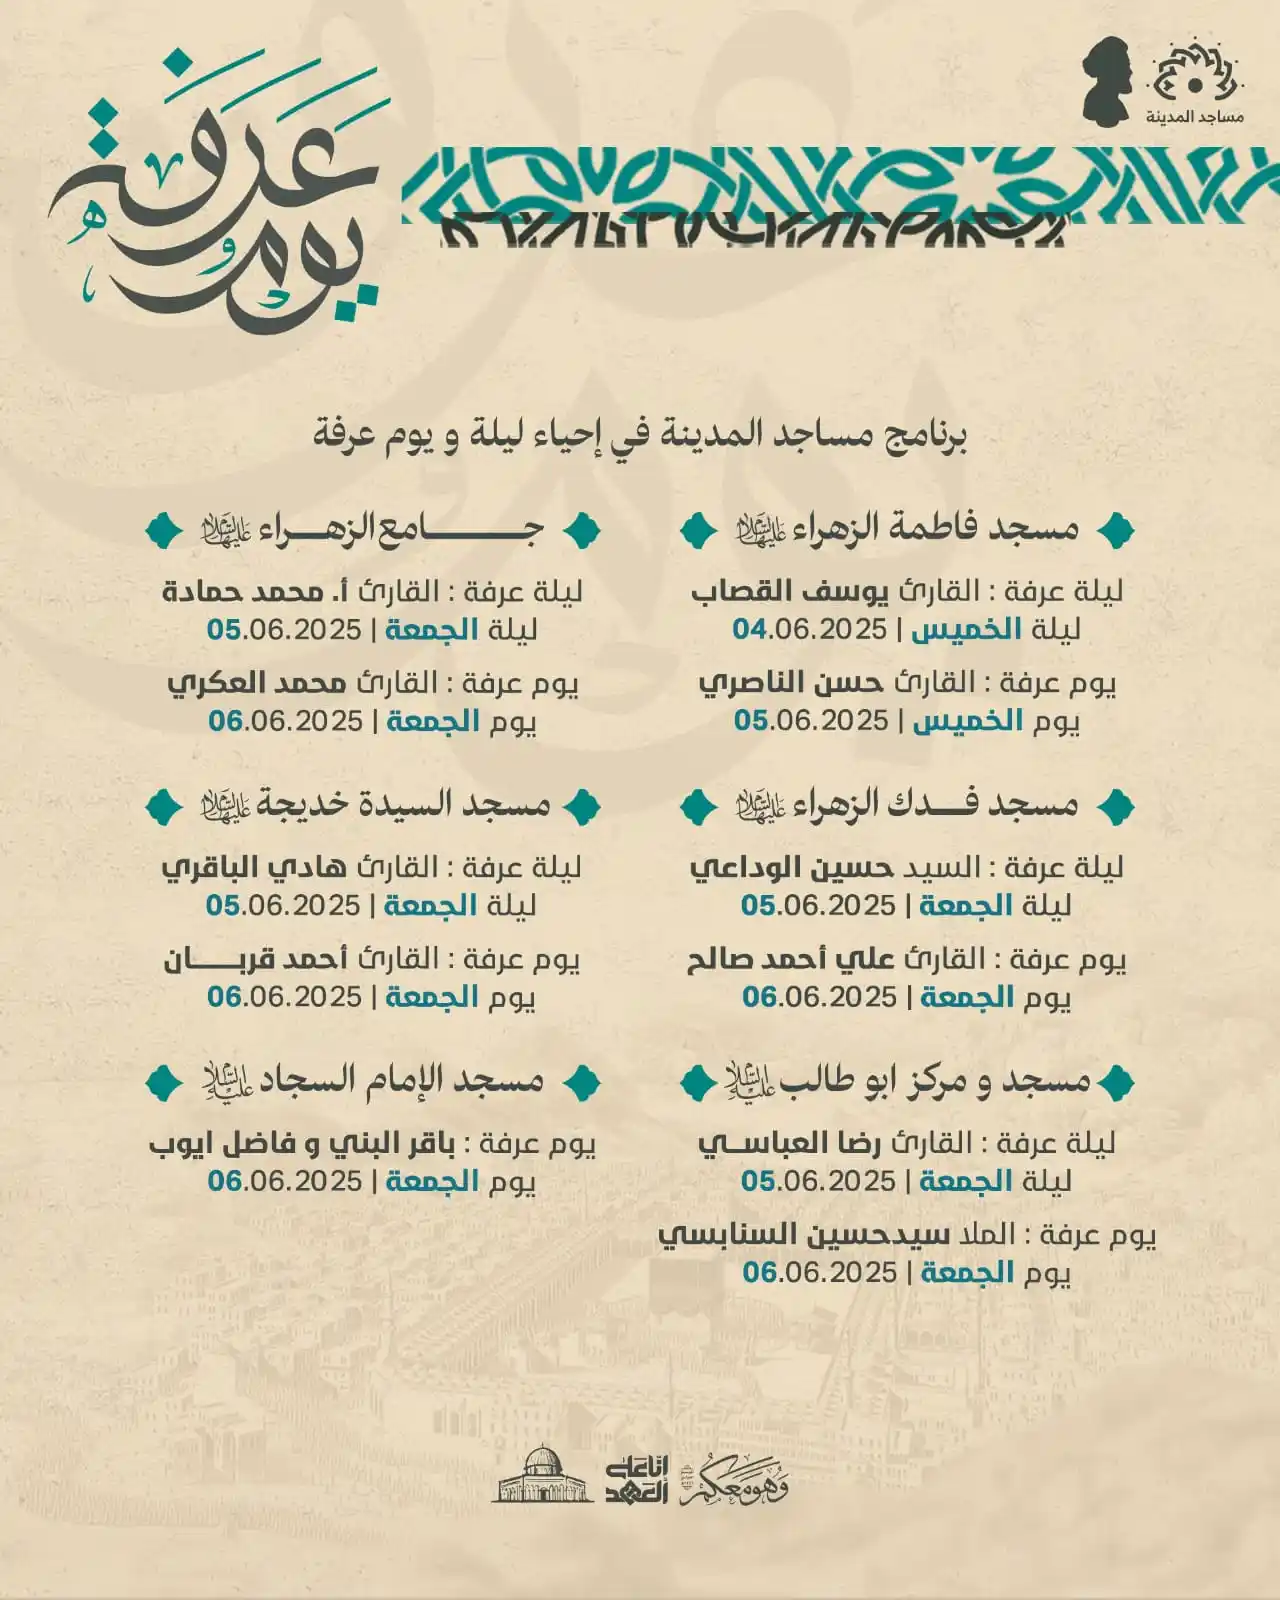 مساجد المدينة
يوم عرفة
برنامج مساجد المدينة في إحياء ليلة و يوم عرفة
مسجد فاطمة الزهراء عليها السلام
ليلة عرفة : القارئ يوسف القصاب
ليلة الخميس | 04.06.2025
يوم عرفة : القارئ حسن الناصري
يوم الخميس | 05.06.2025
جامع الزهراء عليها السلام
ليلة عرفة : القارئ أ. محمد حمادة
ليلة الجمعة | 05.06.2025
يوم عرفة : القارئ محمد العكري
يوم الجمعة | 06.06.2025
مسجد فدك الزهراء عليها السلام
ليلة عرفة : السيد حسين الوداعي
ليلة الجمعة | 05.06.2025
يوم عرفة : القارئ علي أحمد صالح
يوم الجمعة | 06.06.2025
مسجد السيدة خديجة عليها السلام
ليلة عرفة : القارئ هادي الباقري
ليلة الجمعة | 05.06.2025
يوم عرفة : القارئ أحمد قربــان
يوم الجمعة | 06.06.2025
مسجد و مركز ابو طالب عليه السلام
ليلة عرفة : القارئ رضا العباسي
ليلة الجمعة | 05.06.2025
يوم عرفة : الملا سيدحسين السنابسي
يوم الجمعة | 06.06.2025
مسجد الإمام السجاد عليه السلام
يوم عرفة : باقر البني و فاضل ايوب
يوم الجمعة | 06.06.2025
وهو معكم
إنا على
العهد